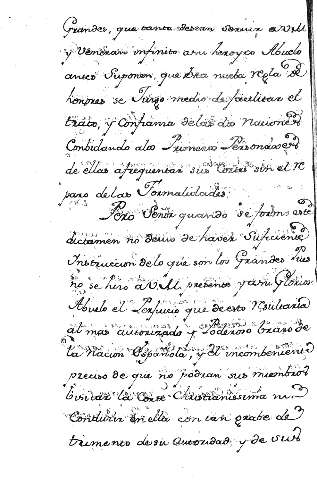 Grandes, que tanto desean servir a V.M.
y Veneran infinito a su heroyco Abuelo
antes Suponen, que esta nueba regla de
honores se Juzgo medio de facilitar el
trato, y Confianza de las dos Naciones
Conbidando a los Primeros Personages
de ellas a frequentar sus Cortes sin el re
paro de las Formalidades.
Pero Señor quando se formo este
dictamen no devio de haver Suficiente
Instruccion de lo que son los Grandes pues
no se hizo a V.M. presente y a su Glorioso
Abuelo el Perjuicio que de esto resultaria
al mas autorizado y Poderoso brazo de
la Nacion Española, y el incombeniente
preciso de que no podrian sus miembros
bisitar la Corte Christianissima ni
Concurrir en ella con tan grabe de
trimento de su autoridad y de sus